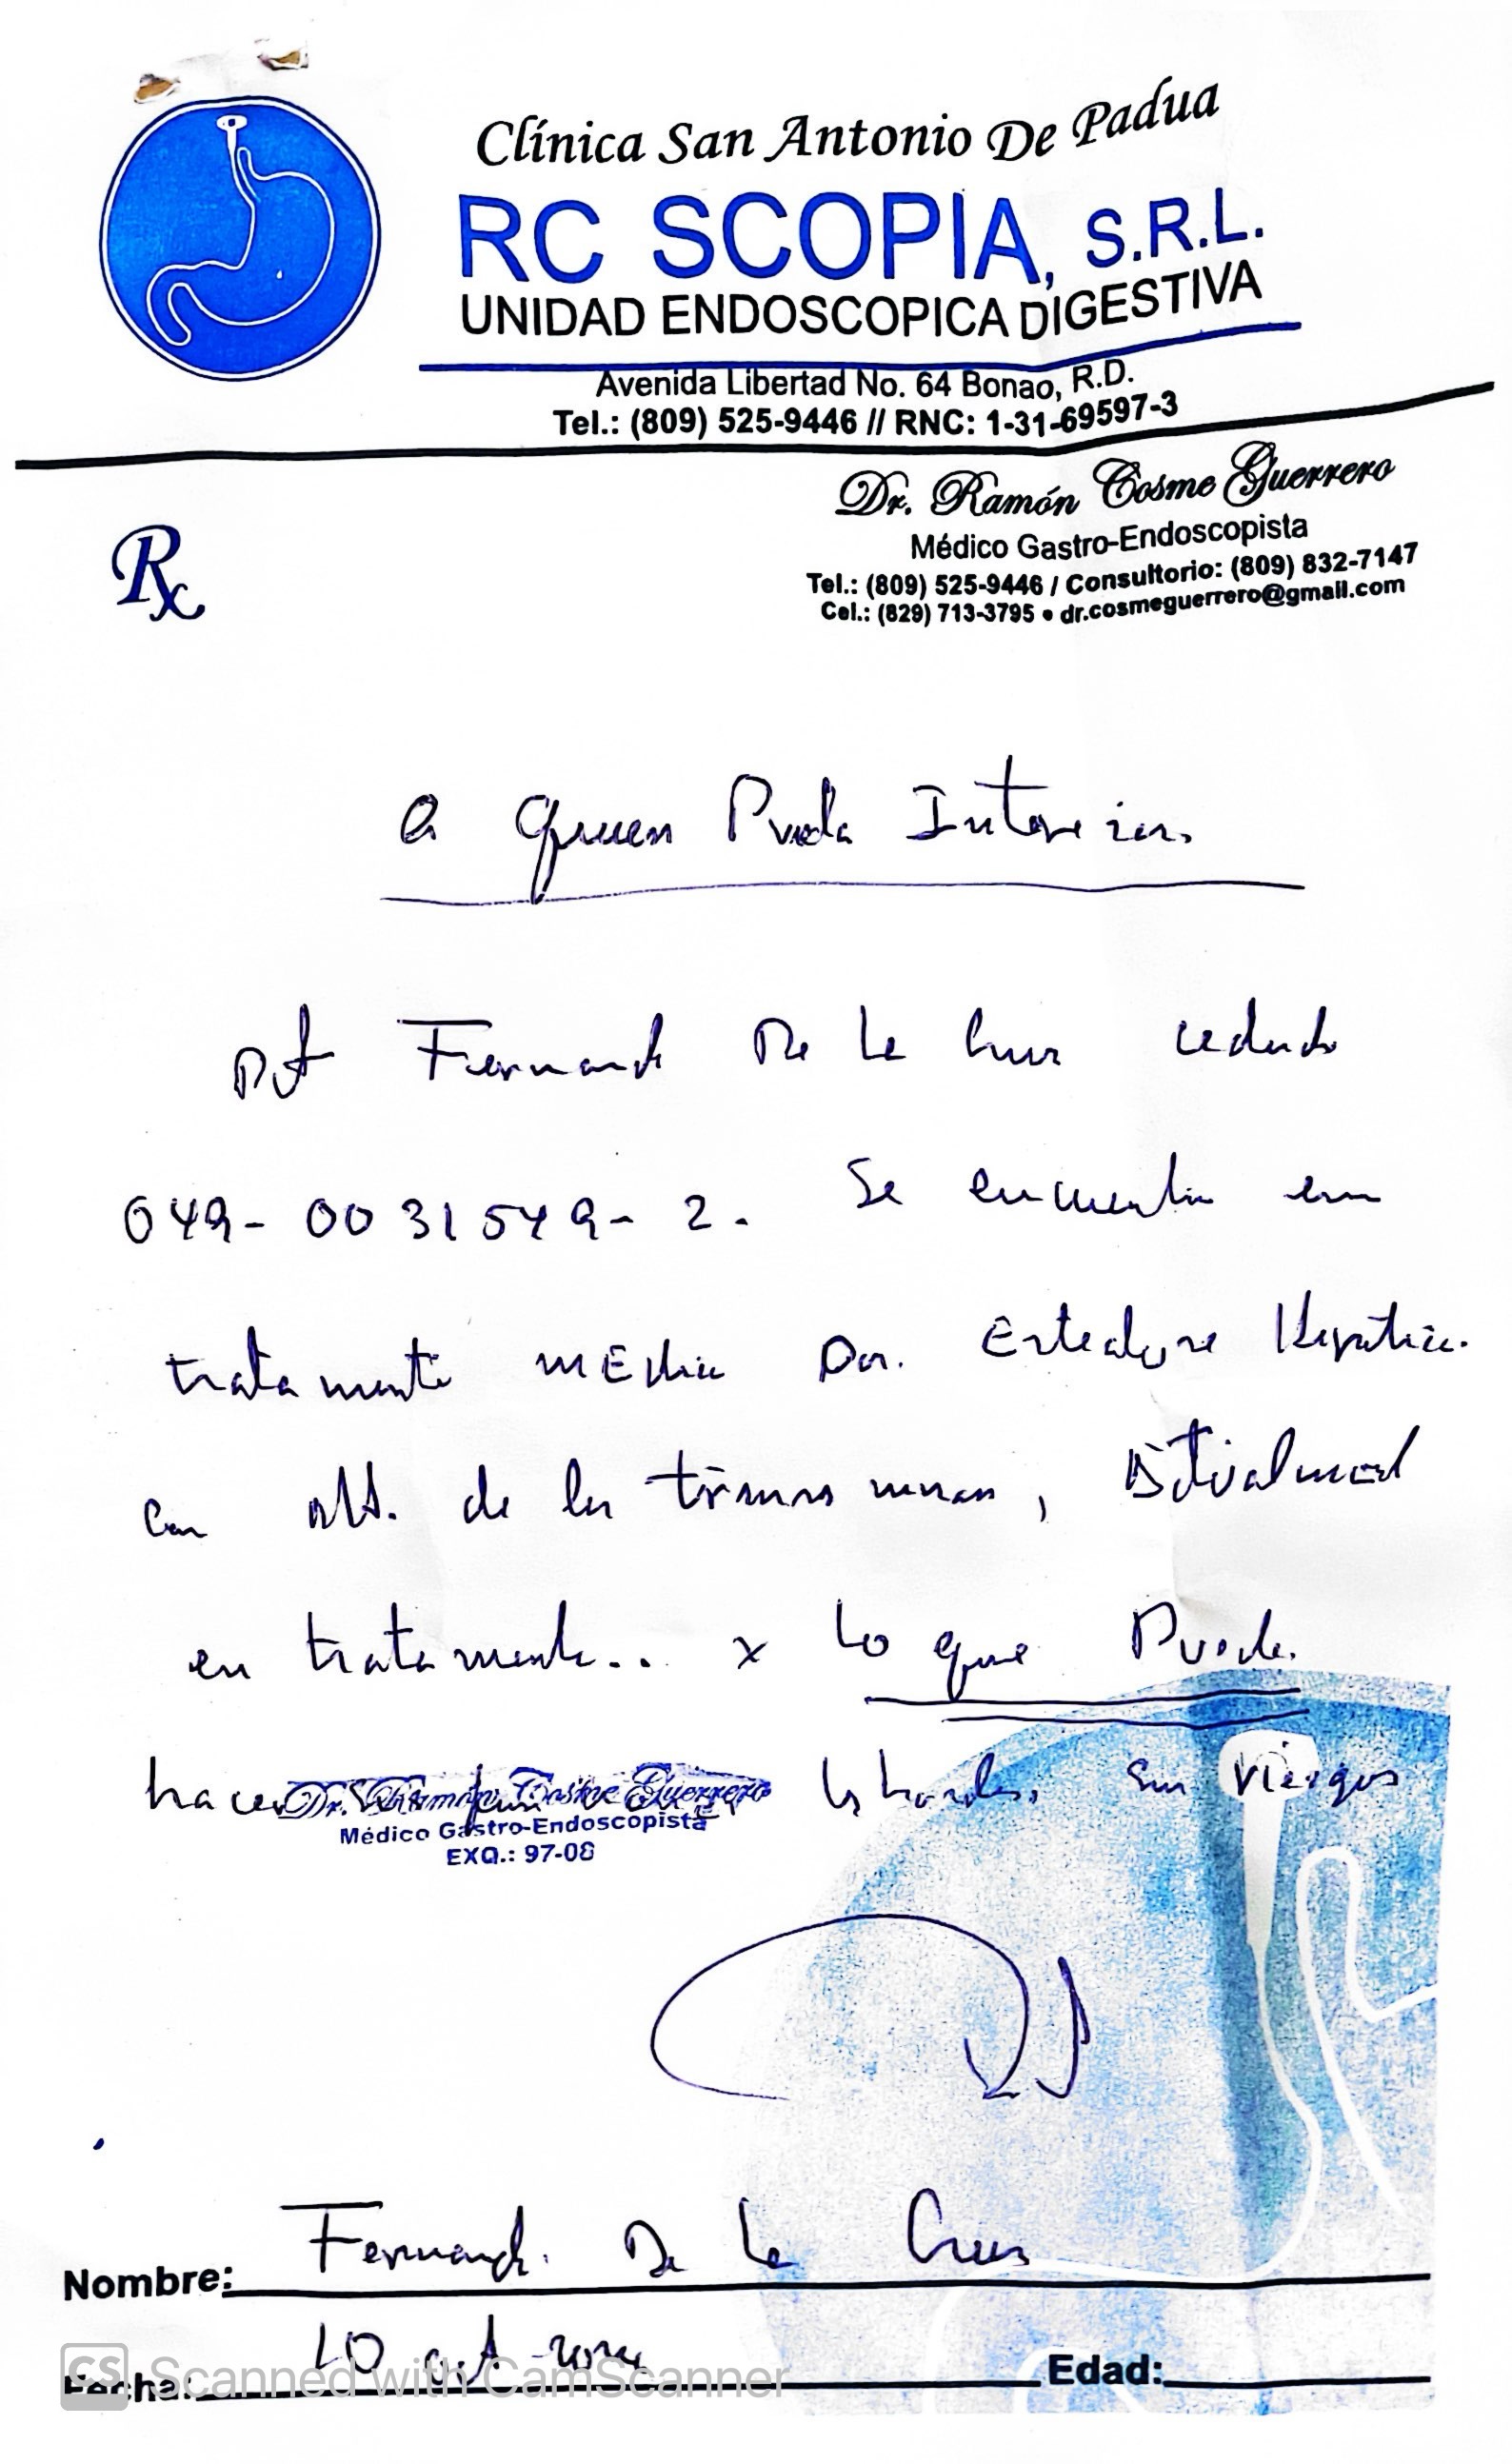 Clínica San Antonio De Padua
RC SCOPIA, S.R.L.
UNIDAD ENDOSCOPICA DIGESTIVA
Avenida Libertad No. 64 Bonao, R.D.
Tel.: (809) 525-9446 // RNC: 1-31-69597-3
Dr. Ramón Cosme Guerrero
Médico Gastro-Endoscopista
Tel.: (809) 525-9446 / Consultorio: (809) 832-7147
Cel.: (829) 713-3795 • dr.cosmeguerrero@gmail.com
Rx
A quien Pueda Interesar.
Pt Fernando De La Cruz cedula
049-0031549-2. Se encuentra en
tratamiento médico Por. Hepática.
Con de las
en tratamiento.. x lo que Puede.
hacer sin riesgos
Dr. Ramón Cosme Guerrero
Médico Gastro-Endoscopista
EXQ.: 97-08
Nombre: Fernando De La Cruz
Fecha: 10 oct Edad:
CS Scanned with CamScanner